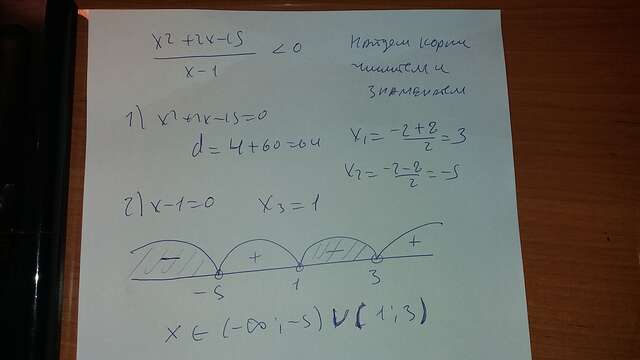 x² + 2x - 15
x - 1
< 0
Найдем корни
числителя и
знаменателя
1) x² + 2x - 15 = 0
d = 4 + 60 = 64
x₁ = (-2+8)/2 = 3
x₂ = (-2-8)/2 = -5
2) x - 1 = 0   x₃ = 1
- + + +
-5 1 3
x ∈ (-∞; -5) ∪ (1; 3)